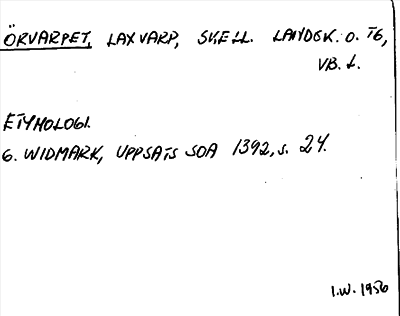 ÖRVARPET, LAXVARP, SKELL. LANDSK. O. TG,
VB. L.
ETYMOLOGI.
G. WIDMARK, UPPSATS SOA 1392, S. 24.
I.W. 1956